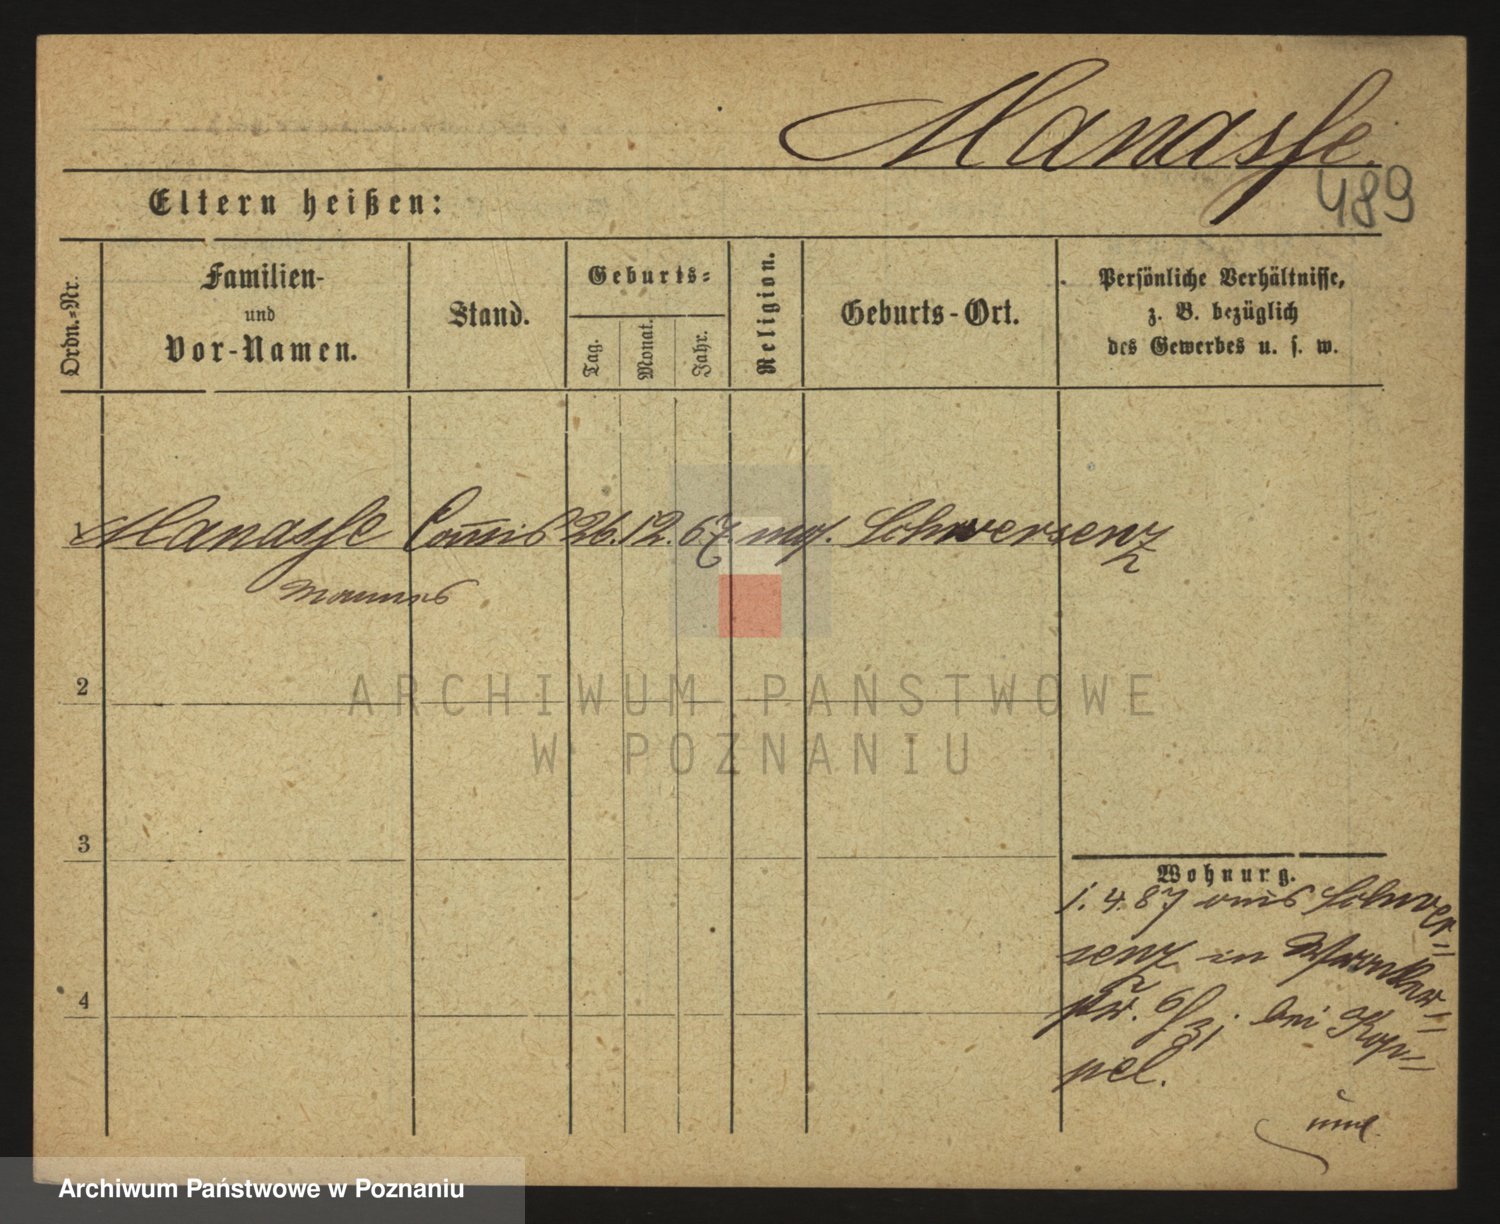 Manasse
489
Eltern heißen:
Ordn.-Nr.
Familien-
und
Vor-Namen.
Stand.
Geburts-
Tag.
Monat.
Jahr.
Religion.
Geburts-Ort.
Persönliche Verhältnisse,
z. B. bezüglich
des Gewerbes u. s. w.
1 Manasse Commis 26. 12. 67. mos. Schwersenz
2
ARCHIWUM PAŃSTWOWE
W POZNANIU
3
4
Wohnung.
1. 4. 87 aus Schwer-
senz in
str. 6/31 bei Kop-
pel.
Archiwum Państwowe w Poznaniu